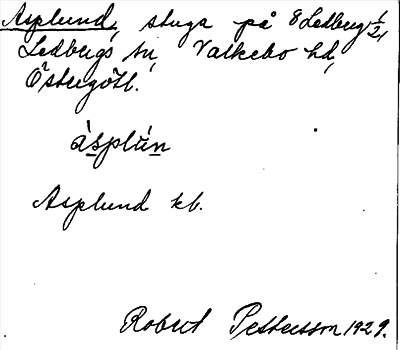 Asplund, stuga på 8 Ledberg 1/2,
Ledbergs sn, Valkebo hd,
Östergötl.
àsplún
Asplund kb.
Robert Pettersson 1929.